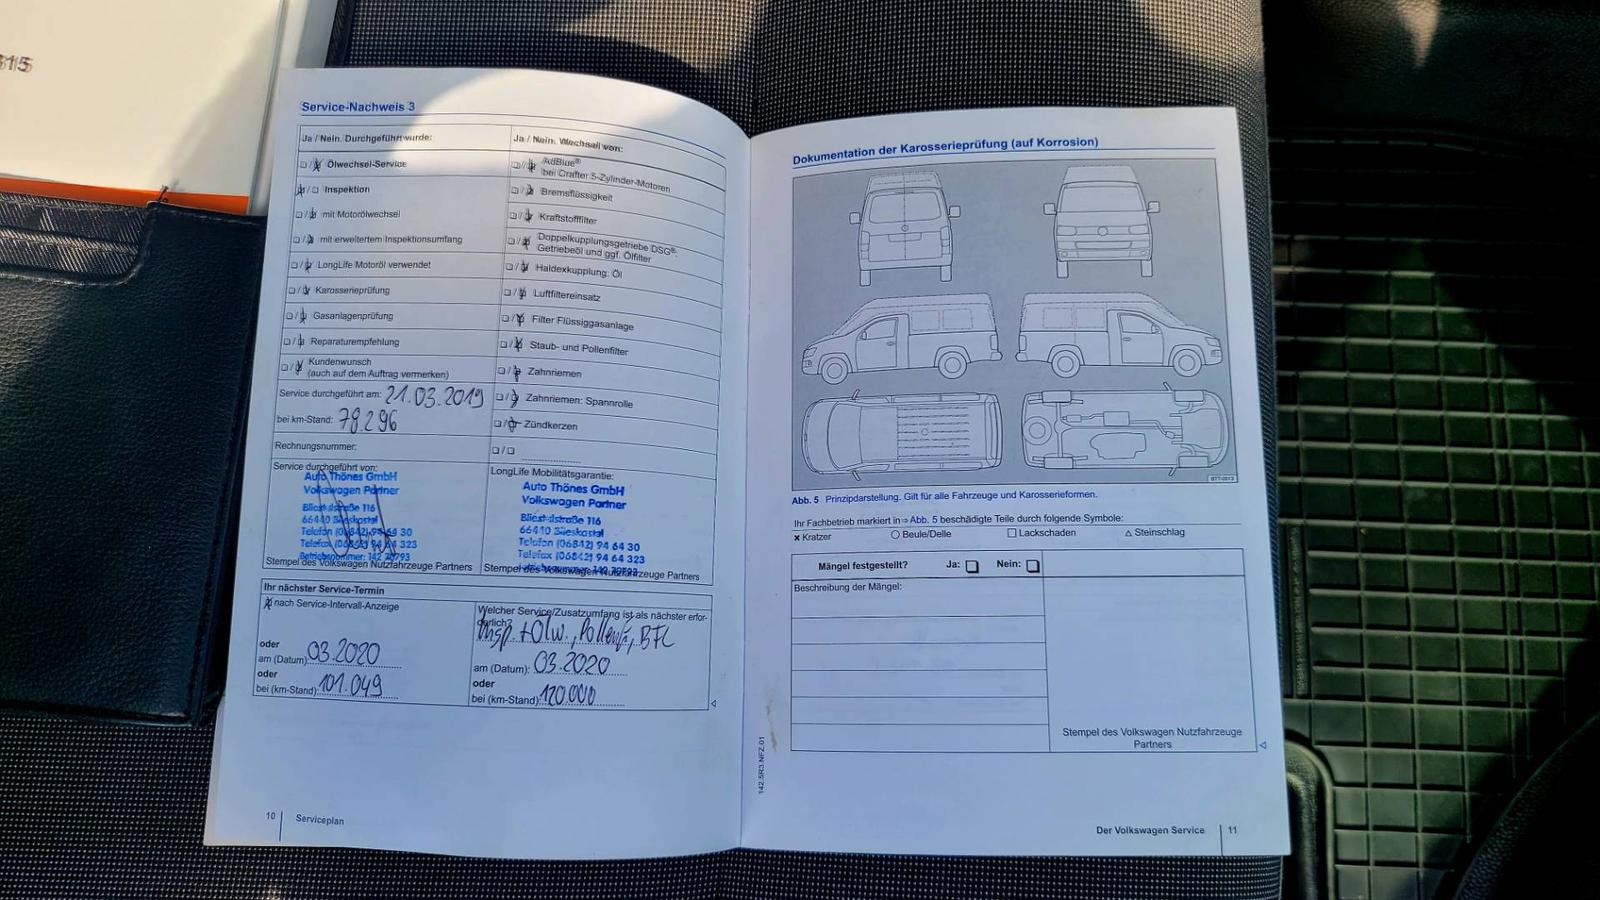 315
Service-Nachweis 3
Ja / Nein. Durchgeführt wurde:
Ölwechsel-Service
Inspektion
mit Motorölwechsel
mit erweitertem Inspektionsumfang
LongLife Motoröl verwendet
Karosserieprüfung
Gasanlagenprüfung
Reparaturempfehlung
Kundenwunsch
(auch auf dem Auftrag vermerken)
Service durchgeführt am: 21.03.2019
bei km-Stand: 78.296
Rechnungsnummer:
Service durchgeführt von:
Auto Thönes GmbH
Volkswagen Partner
Bliestalstraße 116
66440 Blieskastel
Telefon (06842) 94 64 30
Telefax (06842) 94 64 323
Betriebsnummer: 142 70793
Stempel des Volkswagen Nutzfahrzeuge Partners
Ja / Nein. Wechsel von:
AdBlue®
bei Crafter 5-Zylinder-Motoren
Bremsflüssigkeit
Kraftstofffilter
Doppelkupplungsgetriebe DSG®:
Getriebeöl und ggf. Ölfilter
Haldexkupplung: Öl
Luftfiltereinsatz
Filter Flüssiggasanlage
Staub- und Pollenfilter
Zahnriemen
Zahnriemen: Spannrolle
Zündkerzen
LongLife Mobilitätsgarantie:
Auto Thönes GmbH
Volkswagen Partner
Bliestalstraße 116
66440 Blieskastel
Telefon (06842) 94 64 30
Telefax (06842) 94 64 323
Betriebsnummer: 142 70793
Stempel des Volkswagen Nutzfahrzeuge Partners
Ihr nächster Service-Termin
nach Service-Intervall-Anzeige
oder
am (Datum): 03.2020
oder
bei (km-Stand): 101.049
Welcher Service/Zusatzumfang ist als nächster erfor-
derlich?
Insp. + Ölw., Pollenf., BFL
am (Datum): 03.2020
oder
bei (km-Stand): 120.000
10
Serviceplan
Dokumentation der Karosserieprüfung (auf Korrosion)
BTT-0013
Abb. 5 Prinzipdarstellung. Gilt für alle Fahrzeuge und Karosserieformen.
Ihr Fachbetrieb markiert in ⇒ Abb. 5 beschädigte Teile durch folgende Symbole:
x Kratzer
Beule/Delle
Lackschaden
Steinschlag
Mängel festgestellt? Ja: Nein:
Beschreibung der Mängel:
Stempel des Volkswagen Nutzfahrzeuge
Partners
142.5R3.NFZ.01
Der Volkswagen Service 11